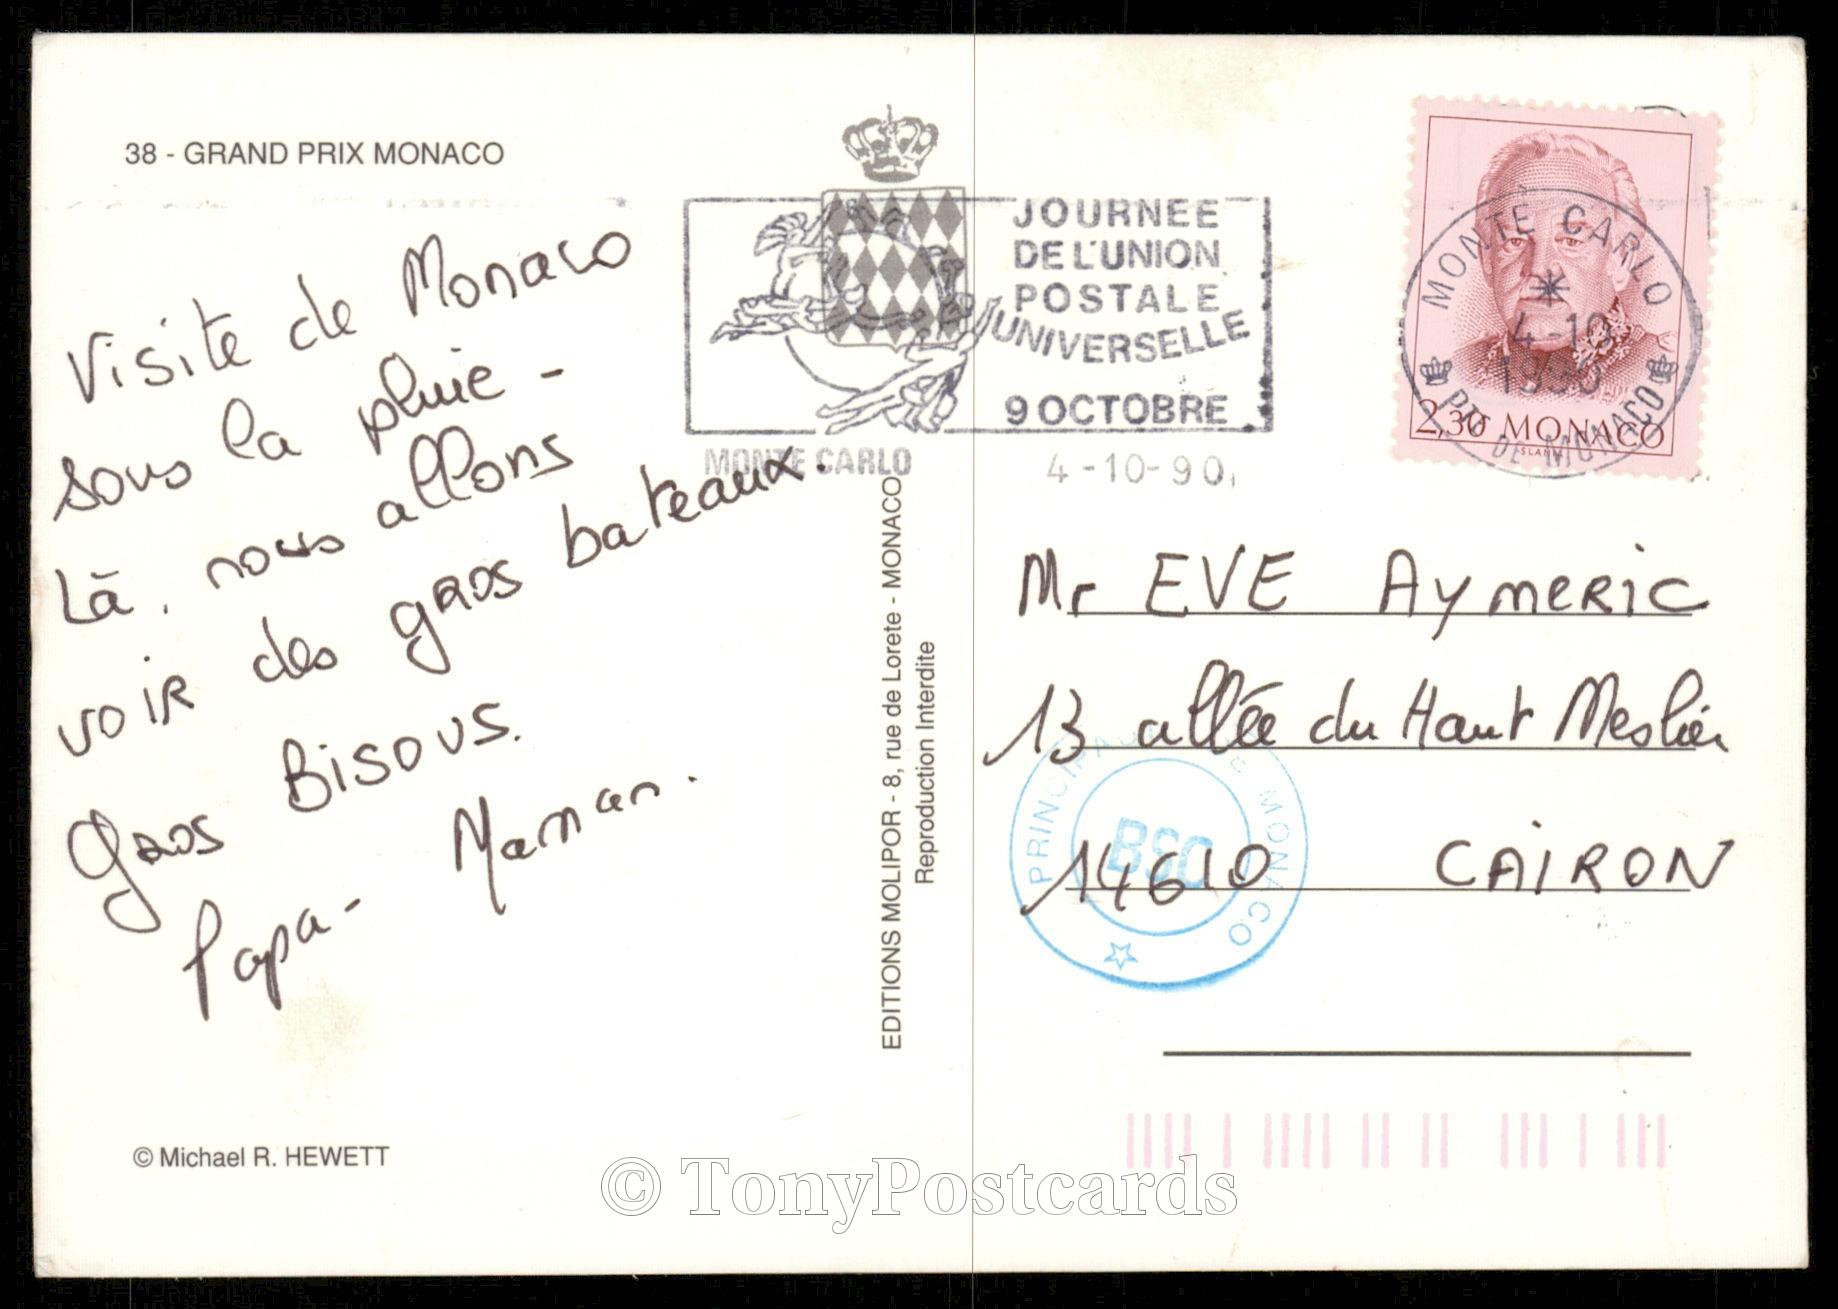 38 - GRAND PRIX MONACO
Visite de Monaco
sous la pluie -
Là, nous allons
voir des gros bateaux.
Gros Bisous.
Papa - Maman.
© Michael R. HEWETT
EDITIONS MOLIPOR - 8, rue de Lorete - MONACO
Reproduction Interdite
JOURNEE
DE L'UNION
POSTALE
UNIVERSELLE
9 OCTOBRE
MONTE CARLO
4-10-90
MONTE CARLO
4-10
1990
PTE DE MONACO
2,30 MONACO
SLANIA
Mr EVE Aymeric
13 allée du Haut Meslier
14610 CAIRON
PRINCIPAUTE DE MONACO
BSC
© TonyPostcards